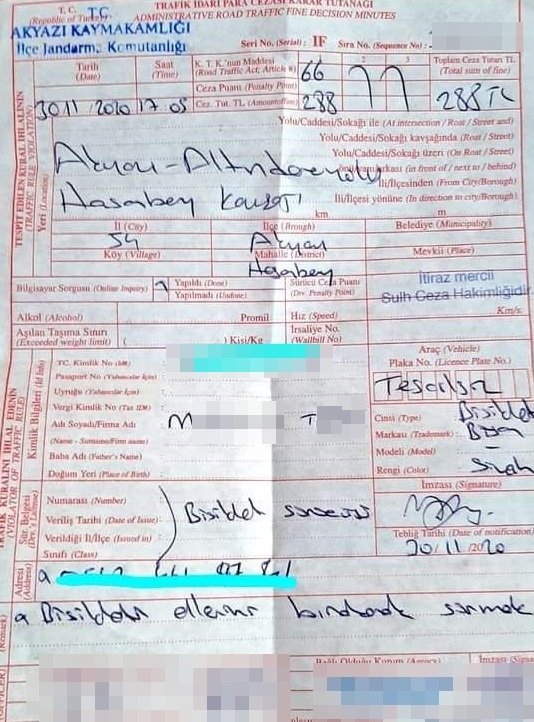 T. C. TC
(Republic of Turkey)
AKYAZI KAYMAKAMLIĞI
İlçe Jandarma Komutanlığı
TRAFİK İDARİ PARA CEZASI KARAR TUTANAĞI
ADMINISTRATIVE ROAD TRAFFIC FINE DECISION MINUTES
Seri No. (Serial) : IF Sıra No. (Sequence No) :
Tarih (Date)
Saat (Time)
K. T. K.'nun Maddesi (Road Traffic Act; Article #) 66
2 3
Toplam Ceza Tutarı TL (Total sum of fine)
Ceza Puanı (Penalty Point)
30 11 2020 17 05
Cez. Tut. TL (Amount of fine) 288
288 TL
TESPİT EDİLEN KURAL İHLALİNİN
(TRAFFIC RULE VIOLATION)
Yeri (Location)
Yolu/Caddesi/Sokağı ile (At intersection / Roat / Street and)
Yolu/Caddesi/Sokağı kavşağında (Roat / Street)
Yolu/Caddesi/Sokağı üzeri (On Roat / Street)
önü/arkası (in front of / next to / behind)
İli/İlçesinden (From City/Borough)
İli/İlçesi yönüne (In direction to city/borough)
Akyazı - Altındere yolu
Hasabey Kavşağı
km m
İl (City)
İlçe (Brough)
Belediye (Municipality)
54
Akyazı
Köy (Village)
Mahalle (District)
Mevkii (Place)
Hasabey
Bilgisayar Sorgusu (Online Inquiry)
Yapıldı (Done)
Yapılmadı (Undone)
Sürücü Ceza Puanı (Drv. Penalty Point)
İtiraz mercii
Sulh Ceza Hakimliğidir
Alkol (Alcohol)
Promil
Hız (Speed)
Km/s
Aşılan Taşıma Sınırı (Exceeded weight limit)
( ) Kişi/Kg
İrsaliye No. (Wailbill No)
TRAFİK KURALINI İHLAL EDENİN
(VIOLATOR OF TRAFFIC RULE)
Kimlik Bilgileri (Id Info)
TC. Kimlik No (Id#) :
Pasaport No (Yabancılar İçin) :
Uyruğu (Yabancılar İçin) :
Vergi Kimlik No (Tax ID#) :
Adı Soyadı/Firma Adı M T
(Name - Surname/Firm name) :
Baba Adı (Father's Name) :
Doğum Yeri (Place of Birth) :
Araç (Vehicle)
Plaka No. (Licence Plate No.)
Tescilsiz
Cinsi (Type) Bisiklet
Markası (Trademark) :
Modeli (Model) : -
Rengi (Color) Siyah
İmzası (Signature)
Sür. Belgesi
Numarası (Number)
Veriliş Tarihi (Date of Issue) :
Verildiği İl/İlçe (Issued in) :
Sınıfı (Class)
Bisiklet sürücüsü
Tebliğ Tarihi (Date of notification)
30/11/2020
Adresi (Address)
a Bisikleti ellerini bırakarak sürmek
(Remark)
Bağlı Olduğu Kurum (Agency)
İmzası